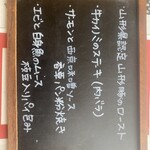 ・山形県認定 山形豚のロースト
・牛カイノミのステーキ(内バラ)
・サーモンと西京味噌ソース
香草パン粉焼き
・エビと白身魚のムース
枝豆入りパイ包み